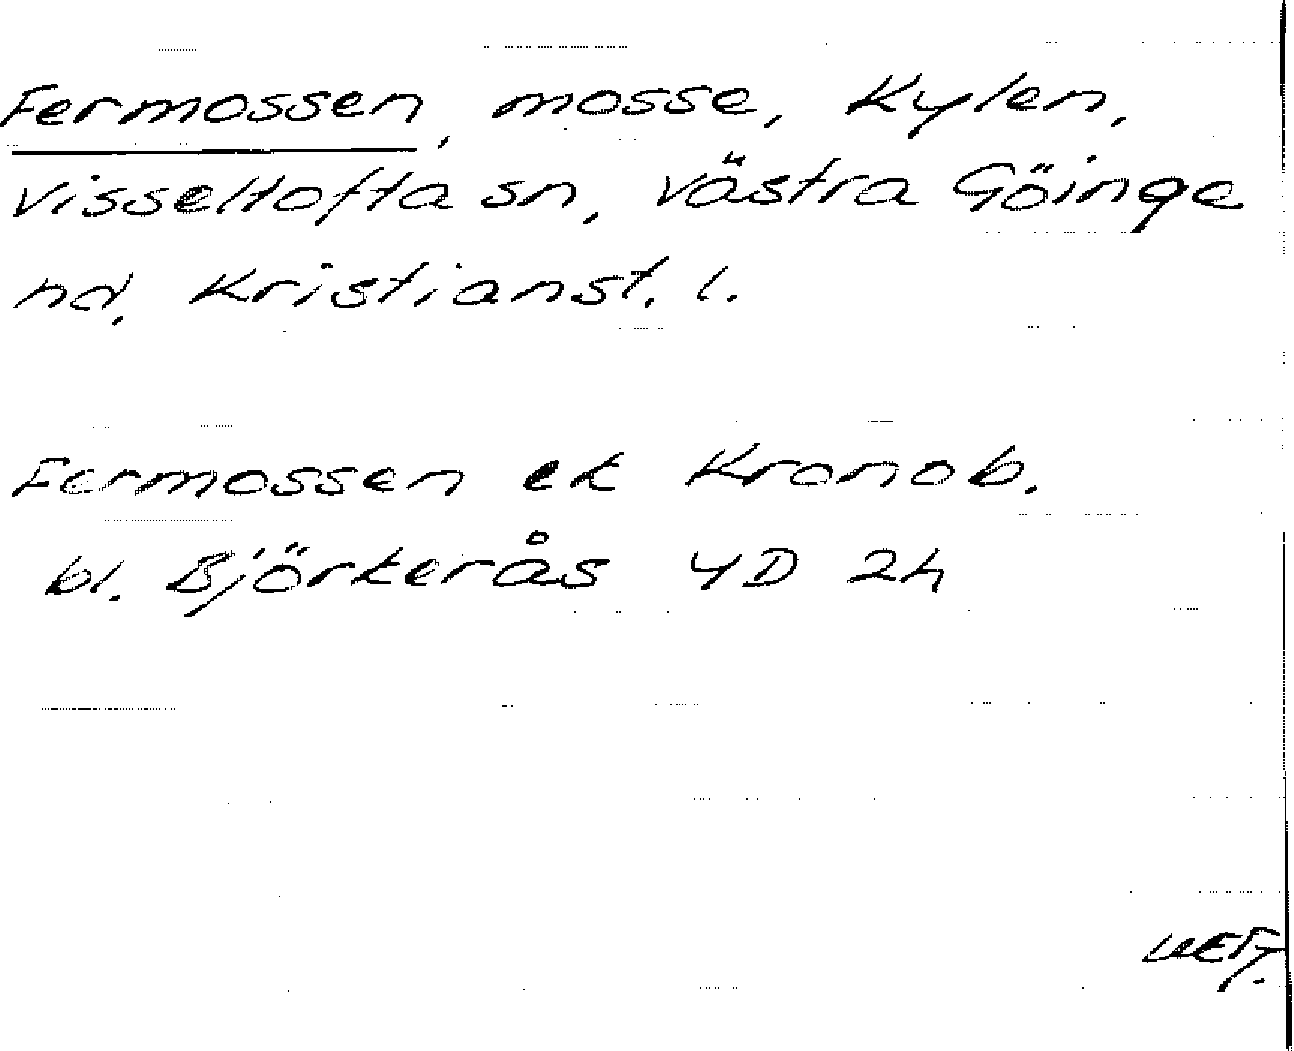 Fermossen, mosse, Kylen,
Visseltofta sn, Västra Göinge
hd, Kristianst. l.
Fermossen ek Kronob.
bl. Björkerås 4D 2h